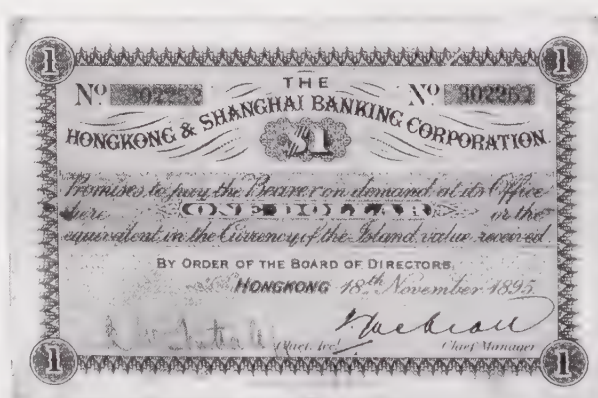 1 1
THE
Nº 302252 Nº 302252
HONGKONG & SHANGHAI BANKING CORPORATION.
$1
Promises to pay the Bearer on demand at its Office
here ONE DOLLAR or the
equivalent in the Currency of the Island, value received.
BY ORDER OF THE BOARD OF DIRECTORS,
HONGKONG 18th November 1895
Chief Manager
1 1